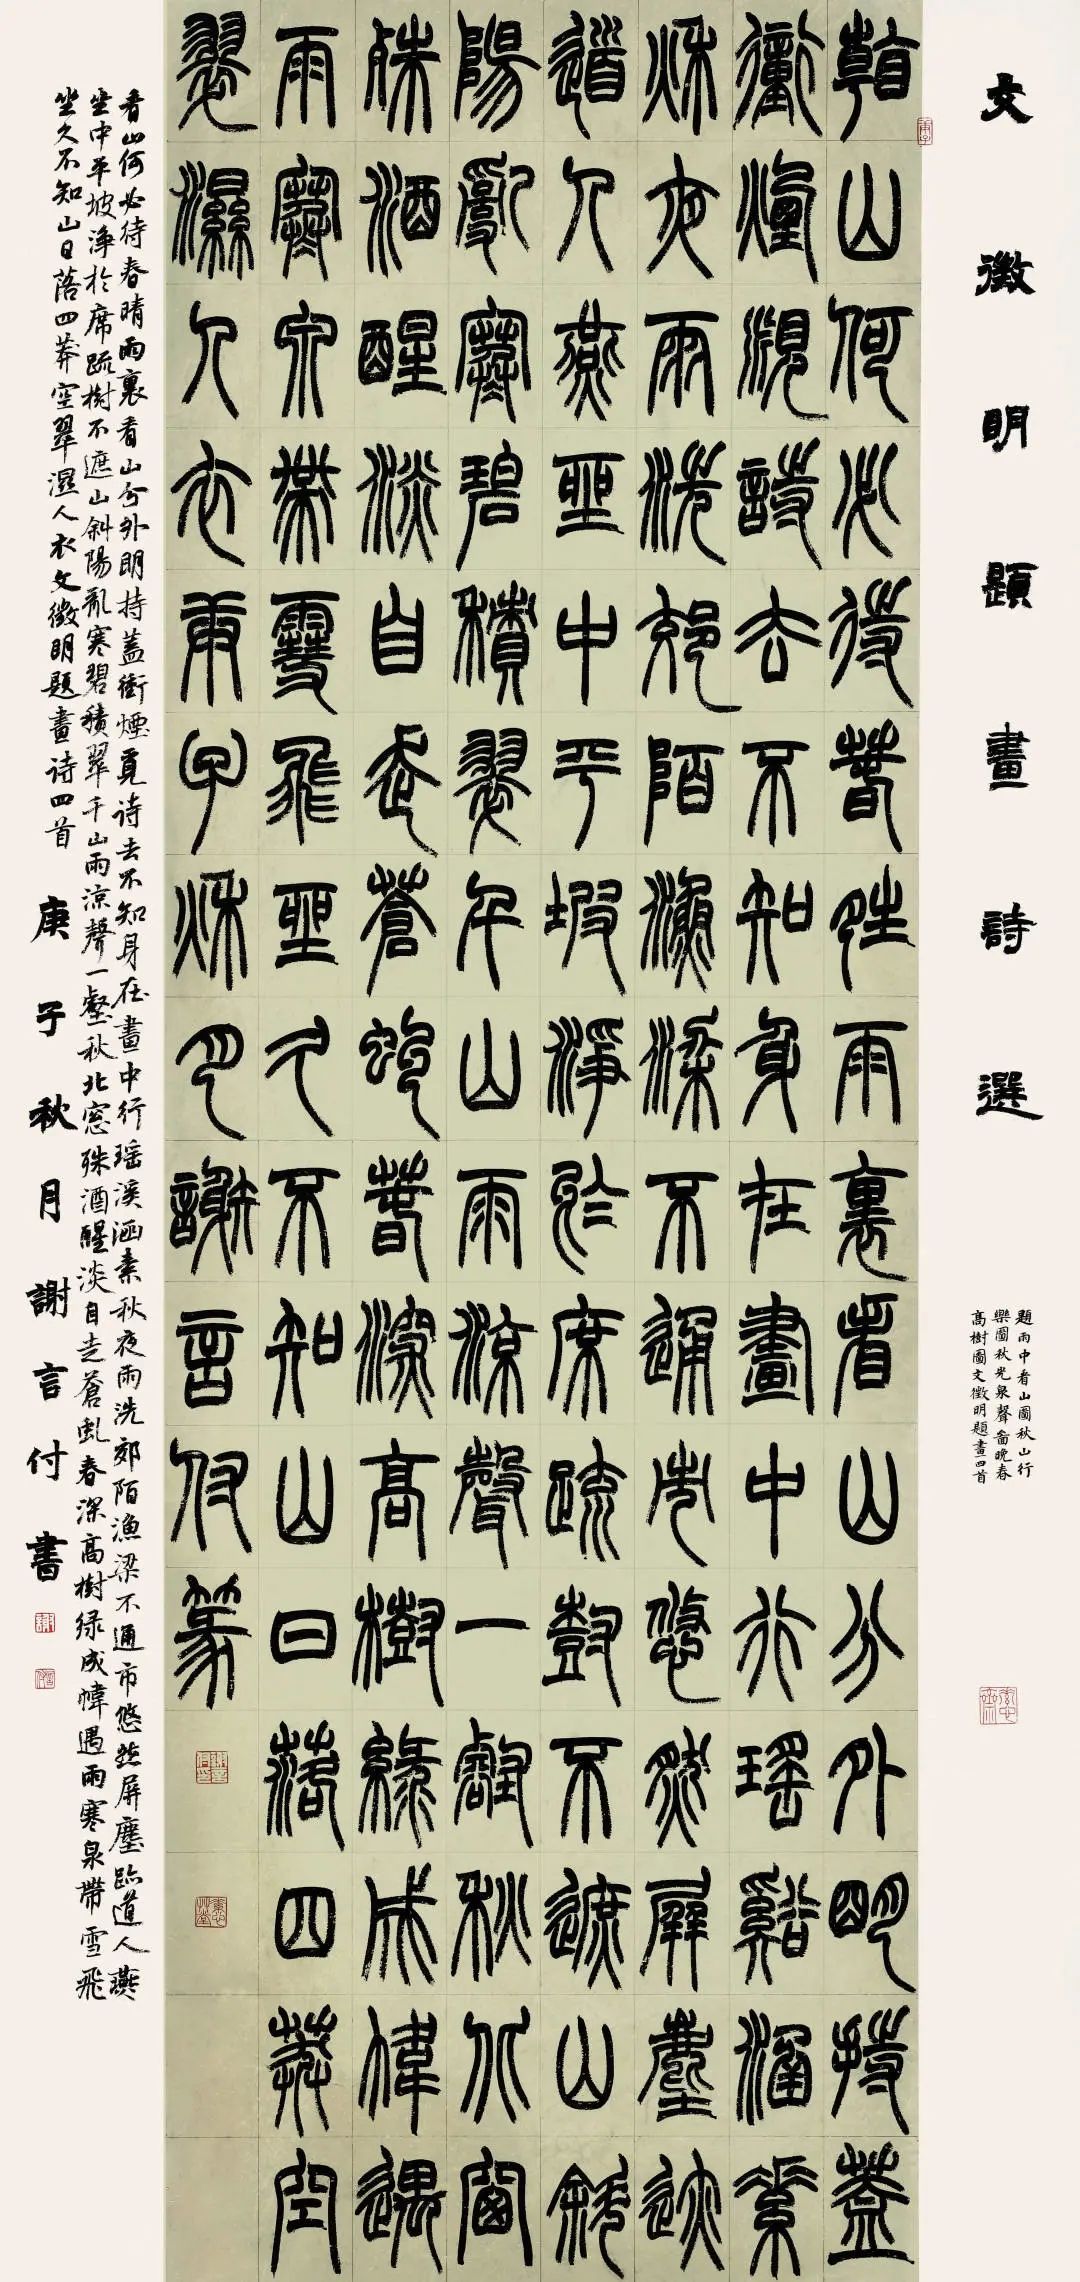 文徵明題畫詩選
題雨中看山圖秋山行
樂圖秋光泉聲圖晚春
高樹圖文徵明題畫四首
看山何必待春晴雨裏看山分外明持蓋
衝煙覓詩去不知身在畫中行瑤谿涵素
秋夜雨洗郊陌漁梁不通市悠然屏塵跡
道人燕坐中平坡淨於席疏樹不遮山斜
陽亂寒碧積翠千山雨涼聲一壑秋北窗
殊酒醒淡自走蒼虬春深高樹綠成幃遇
雨寒泉帶雪飛坐久不知山日落四莽空
翠濕人衣庚子秋月謝言付篆
看山何必待春晴雨裏看山分外明持蓋衝煙覓詩去不知身在畫中行瑤溪涵素秋夜雨洗郊陌漁梁不通市悠然屏塵跡道人燕
坐中平坡淨於席疏樹不遮山斜陽亂寒碧積翠千山雨涼聲一壑秋北窓殊酒醒淡自走蒼虬春深高樹绿成幃遇雨寒泉帶雪飛
坐久不知山日落四莽空翠濕人衣文徵明題畫诗四首
庚子秋月謝言付書